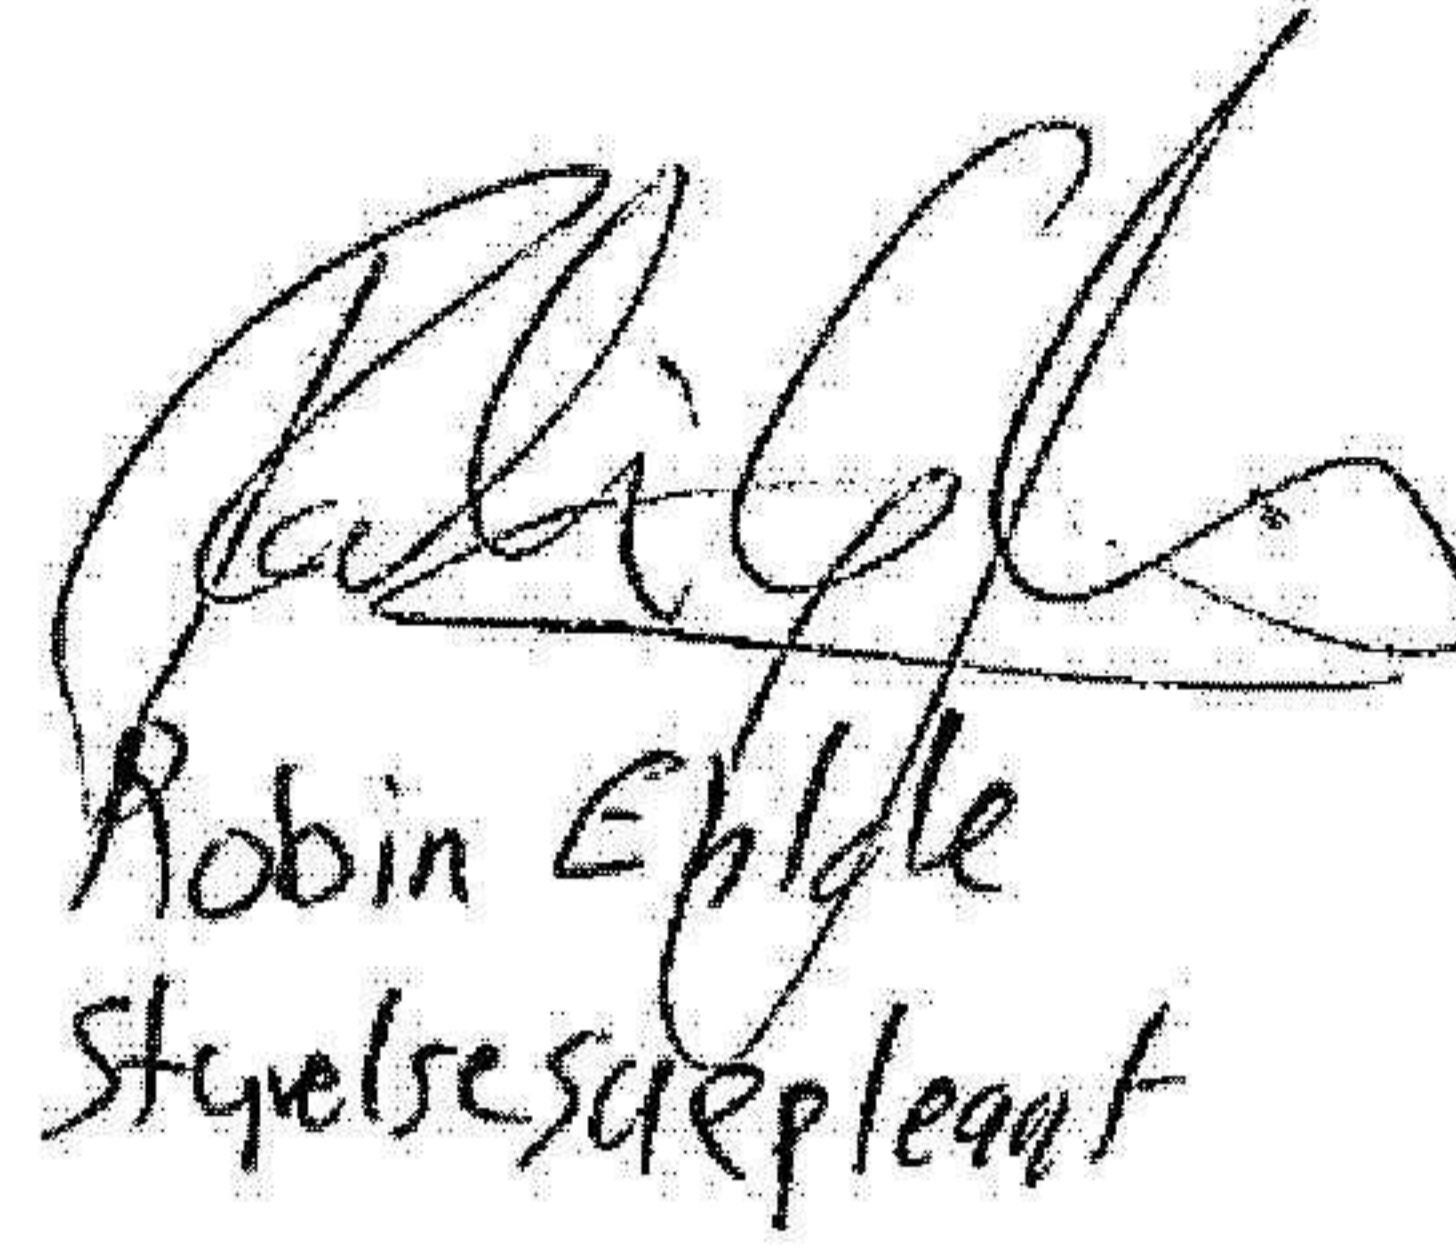 Robin Ehlde
Styrelsesuppleant